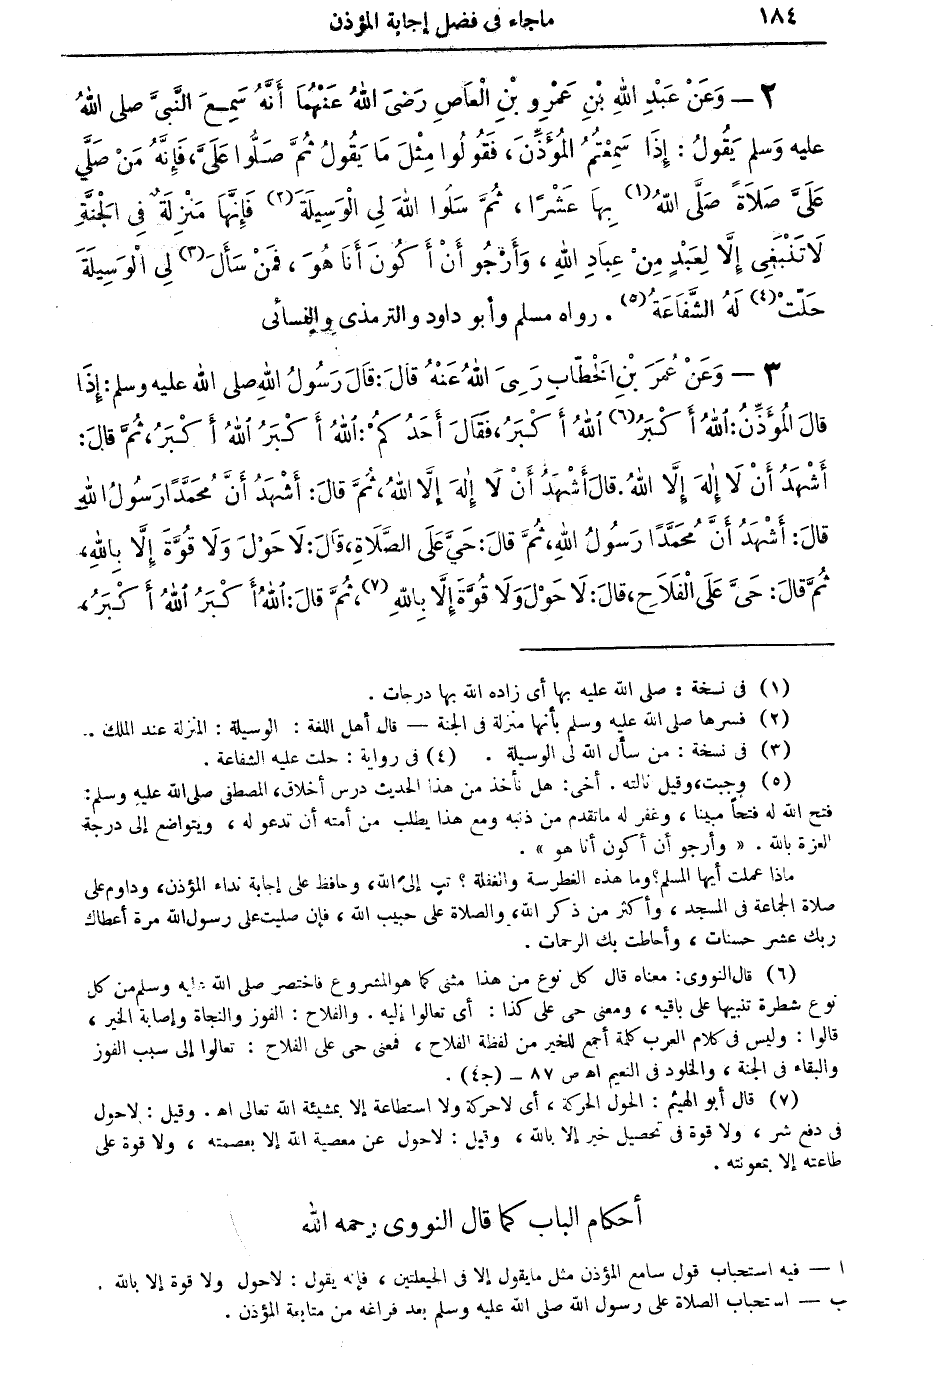 ١٨٤
ماجاء فى فضل إجابة المؤذن
٢ — وَعَنْ عَبْدِ اللهِ بْنِ عَمْرِو بْنِ الْعَاصِ رَضِىَ اللهُ عَنْهُمَا أَنَّهُ سَمِعَ النَّبِىَّ صلى اللهُ
عليه وَسلم يَقُولُ : إِذَا سَمِعْتُمُ المُؤَذِّنَ ، فَقُولُوا مِثْلَ مَا يَقُولُ ثُمَّ صَلُّوا عَلَىَّ، فَإِنَّهُ مَنْ صَلَّى
عَلَىَّ صَلَاةً صَلَّى اللهُ (١) بِهَا عَشْرًا ، ثُمَّ سَلُوا اللهَ لِى الْوَسِيلَةَ (٢) فَإِنَّهَا مَنْزِلَةٌ فِى الجَنَّةِ
لَا تَنْبَغِى إِلَّا لِعَبْدٍ مِنْ عِبَادِ اللهِ ، وَأَرْجُو أَنْ أَكُونَ أَنَا هُوَ ، فَمَنْ سَأَلَ (٣) لِى الْوَسِيلَةَ
حَلَّتْ (٤) لَهُ الشَّفَاعَةُ (٥) . رواه مسلم وأبو داود والترمذى والنسائى
٣ — وَعَنْ عُمَرَ بْنِ الخَطَّابِ رَضِىَ اللهُ عَنْهُ قَالَ : قَالَ رَسُولُ اللهِ صلى الله عليه وسلم : إِذَا
قالَ المُؤَذِّنُ : اللهُ أَكْبَرُ (٦) اللهُ أَكْبَرُ، فَقَالَ أَحَدُكُمْ : اللهُ أَكْبَرُ اللهُ أَكْبَرُ، ثُمَّ قالَ :
أَشْهَدُ أَنْ لَا إِلٰهَ إِلَّا اللهُ . قالَ أَشْهَدُ أَنْ لَا إِلٰهَ إِلَّا اللهُ، ثُمَّ قالَ : أَشْهَدُ أَنَّ مُحَمَّدًا رَسُولُ اللهِ
قالَ : أَشْهَدُ أَنَّ مُحَمَّدًا رَسُولُ اللهِ، ثُمَّ قالَ : حَىَّ عَلَى الصَّلَاةِ، قالَ : لَا حَوْلَ وَلَا قُوَّةَ إِلَّا بِاللهِ،
ثُمَّ قالَ : حَىَّ عَلَى الْفَلَاحِ، قالَ : لَا حَوْلَ وَلَا قُوَّةَ إِلَّا بِاللهِ (٧)، ثُمَّ قالَ : اللهُ أَكْبَرُ اللهُ أَكْبَرُ،
(١) فى نسخة : صلى الله عليه بها أى زاده الله بها درجات .
(٢) فسرها صلى الله عليه وسلم بأنها منزلة فى الجنة — قال أهل اللغة : الوسيلة : المنزلة عند الملك .
(٣) فى نسخة : من سأل الله لى الوسيلة . (٤) فى رواية : حلت عليه الشفاعة .
(٥) وجبت، وقيل نالته . أخى : هل نأخذ من هذا الحديث درس أخلاق، المصطفى صلى الله عليه وسلم :
فتح الله له فتحاً مبينا ، وغفر له ماتقدم من ذنبه ومع هذا يطلب من أمته أن تدعو له ، ويتواضع إلى درجة
العزة بالله . « وأرجو أن أكون أنا هو » .
ماذا عملت أيها المسلم؟ وما هذه الغطرسة والغفلة ؟ تب إلى الله، وحافظ على إجابة نداء المؤذن، وداوم على
صلاة الجماعة فى المسجد ، وأكثر من ذكر الله، والصلاة على حبيب الله ، فإن صليت على رسول الله مرة أعطاك
ربك عشر حسنات ، وأحاطت بك الرحمات .
(٦) قال النووى : معناه قال كل نوع من هذا مثنى كما هو المشروع فاختصر صلى الله عليه وسلم من كل
نوع شطره تنبيها على باقيه ، ومعنى حى على كذا : أى تعالوا إليه . والفلاح : الفوز والنجاة وإصابة الخير ،
قالوا : وليس فى كلام العرب كلمة أجمع للخير من لفظة الفلاح ، فمعنى حى على الفلاح : تعالوا إلى سبب الفوز
والبقاء فى الجنة ، والخلود فى النعيم اه ص ٨٧ - (ج٤) .
(٧) قال أبو الهيثم : الحول الحركة ، أى لا حركة ولا استطاعة إلا بمشيئة الله تعالى اه . وقيل : لاحول
فى دفع شر ، ولا قوة فى تحصيل خير إلا بالله ، وقيل : لاحول عن معصية الله إلا بعصمته ، ولا قوة على
طاعته إلا بمعونته .
أحكام الباب كما قال النووى رحمه الله
ا — فيه استحباب قول سامع المؤذن مثل مايقول إلا فى الحيعلتين ، فإنه يقول : لاحول ولا قوة إلا بالله .
ب — استحباب الصلاة على رسول الله صلى الله عليه وسلم بعد فراغه من متابعة المؤذن .